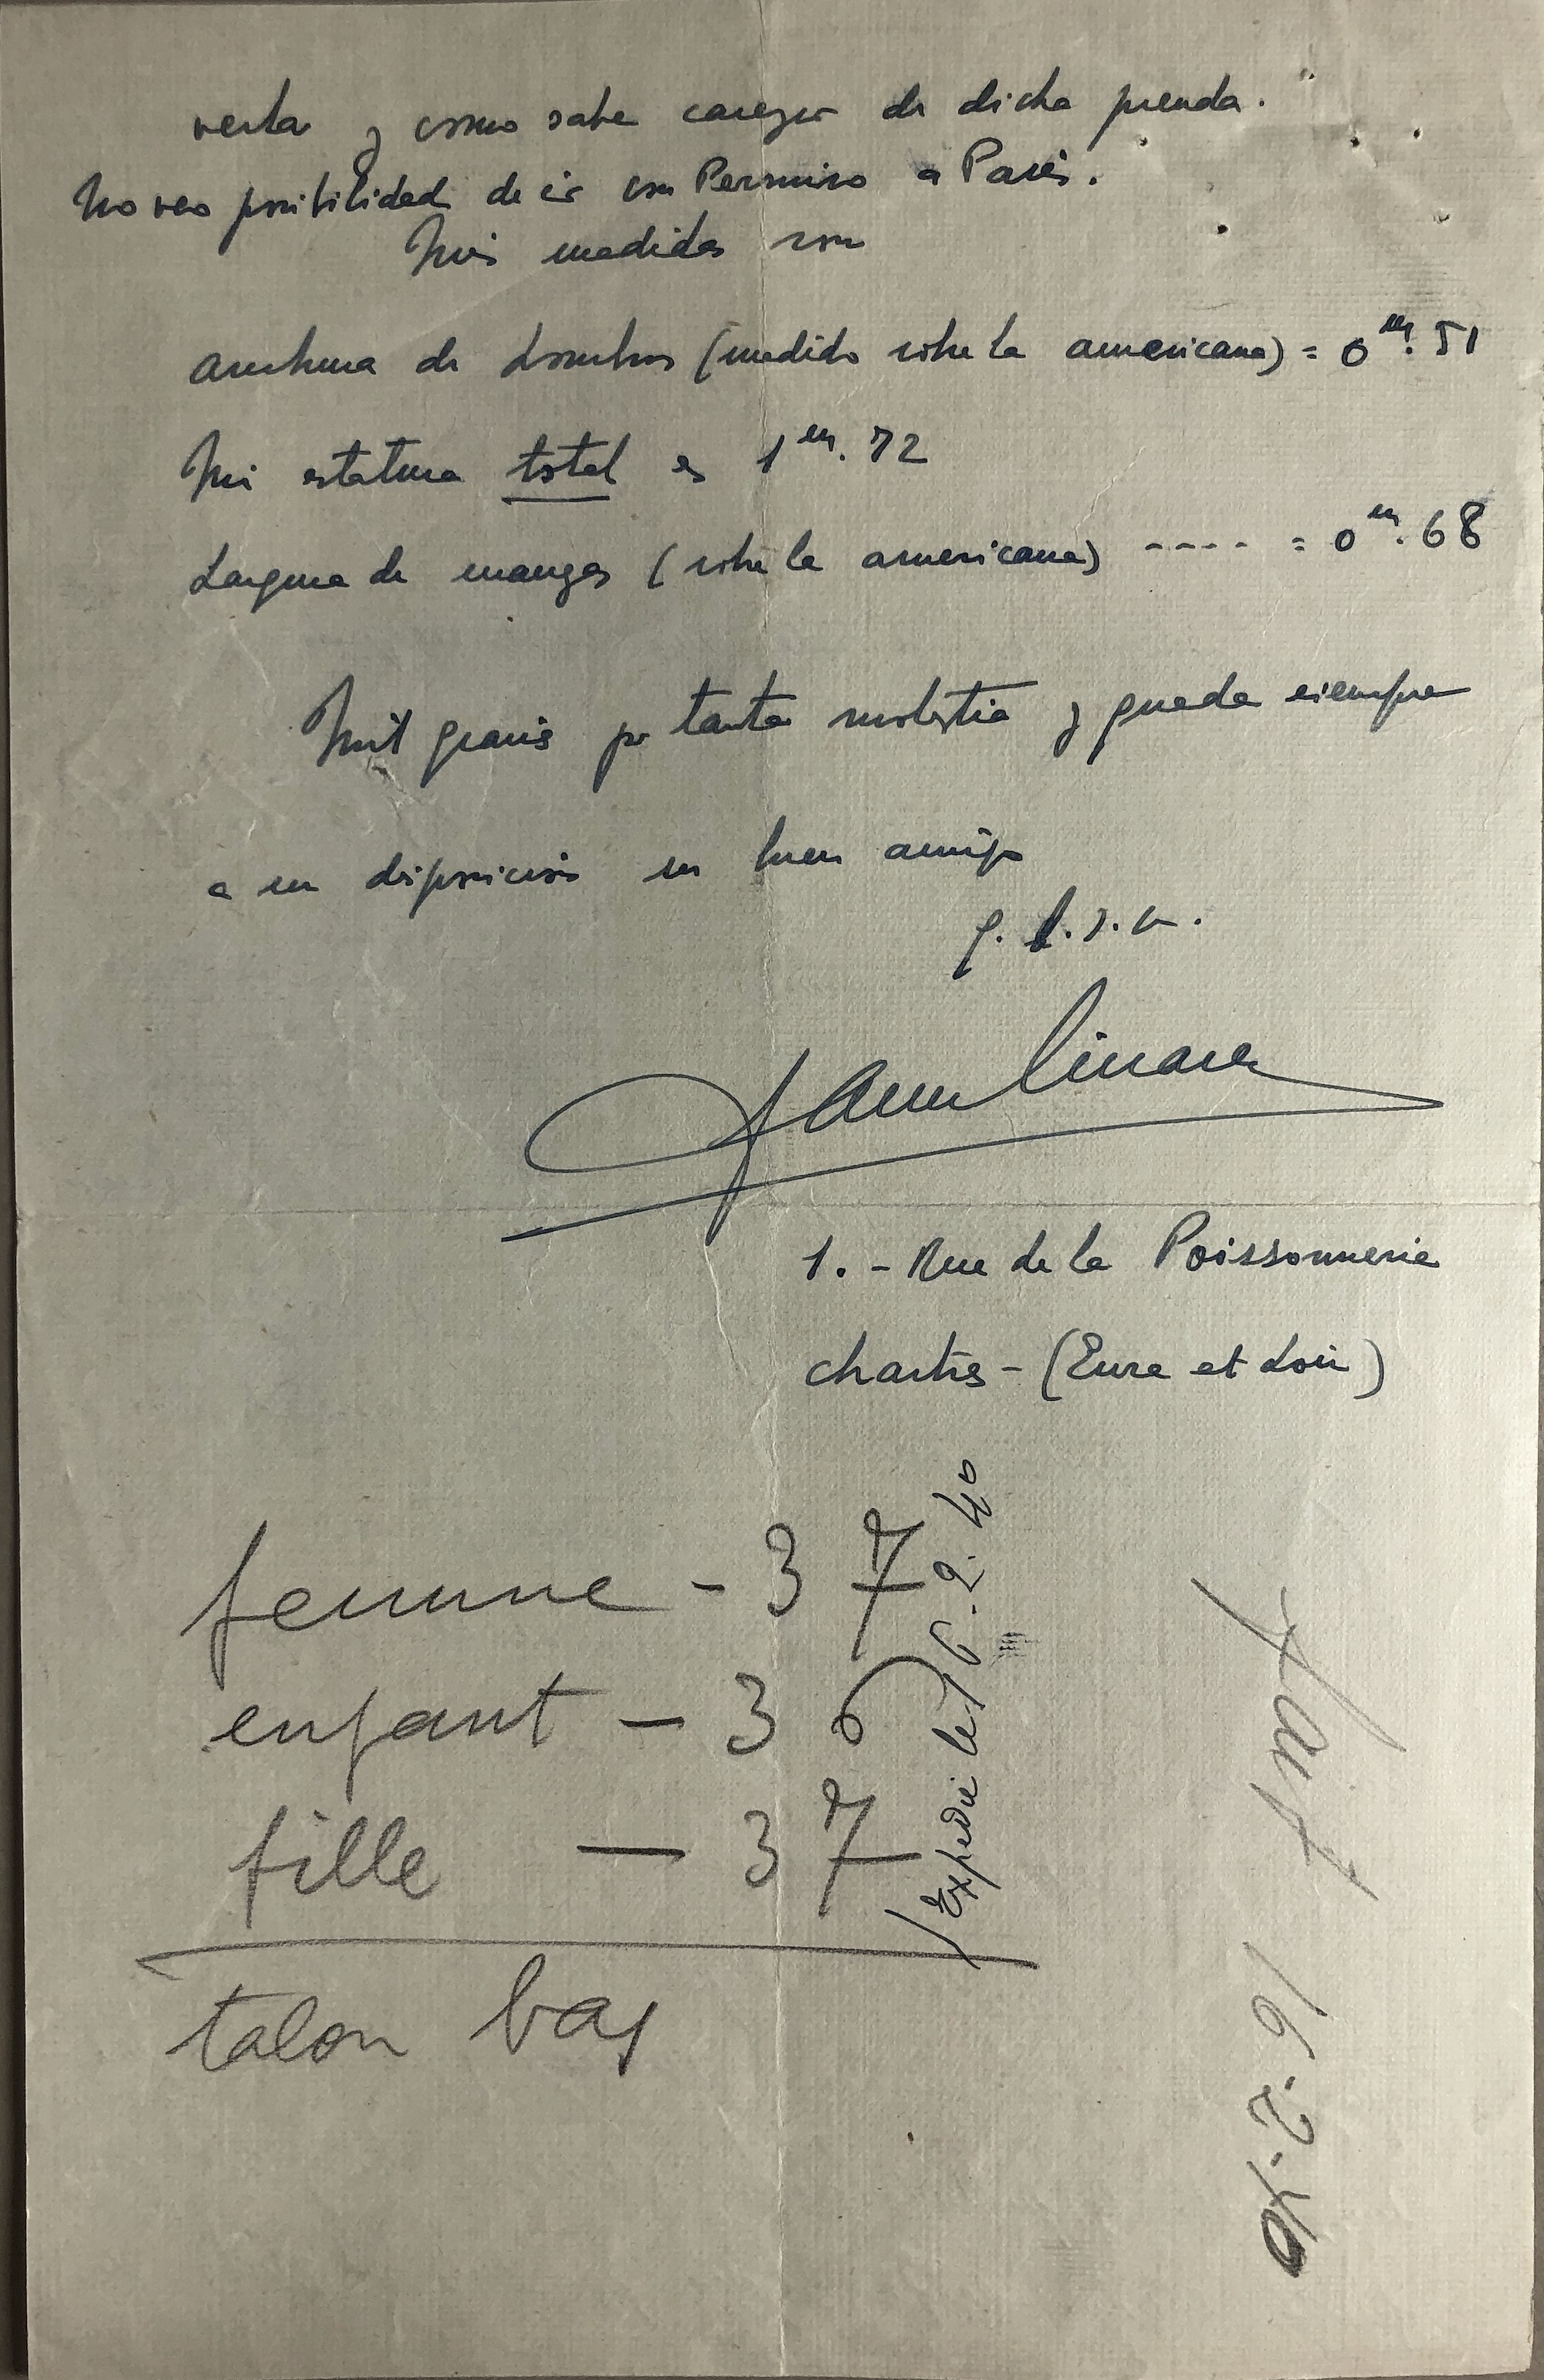 verla y como sabe carezco de dicha prenda.
No veo posibilidad de ir con Permiso a Paris.
Mis medidas son
Anchura de hombros (medido sobre la americana) = 0m. 51
Mi estatura total es 1m. 72
Largura de mangas (sobre la americana) ---- = 0m. 68
Mil gracias por tanta molestia y queda siempre
a su disposicion su buen amigo
q. e. s. m.
Linares
1. - Rue de la Poissonnerie
Chartres - (Eure et Loir)
femme - 37
enfant - 36
fille - 37
talon bas
Expedié le 16.2.40
Fait 16-2-40